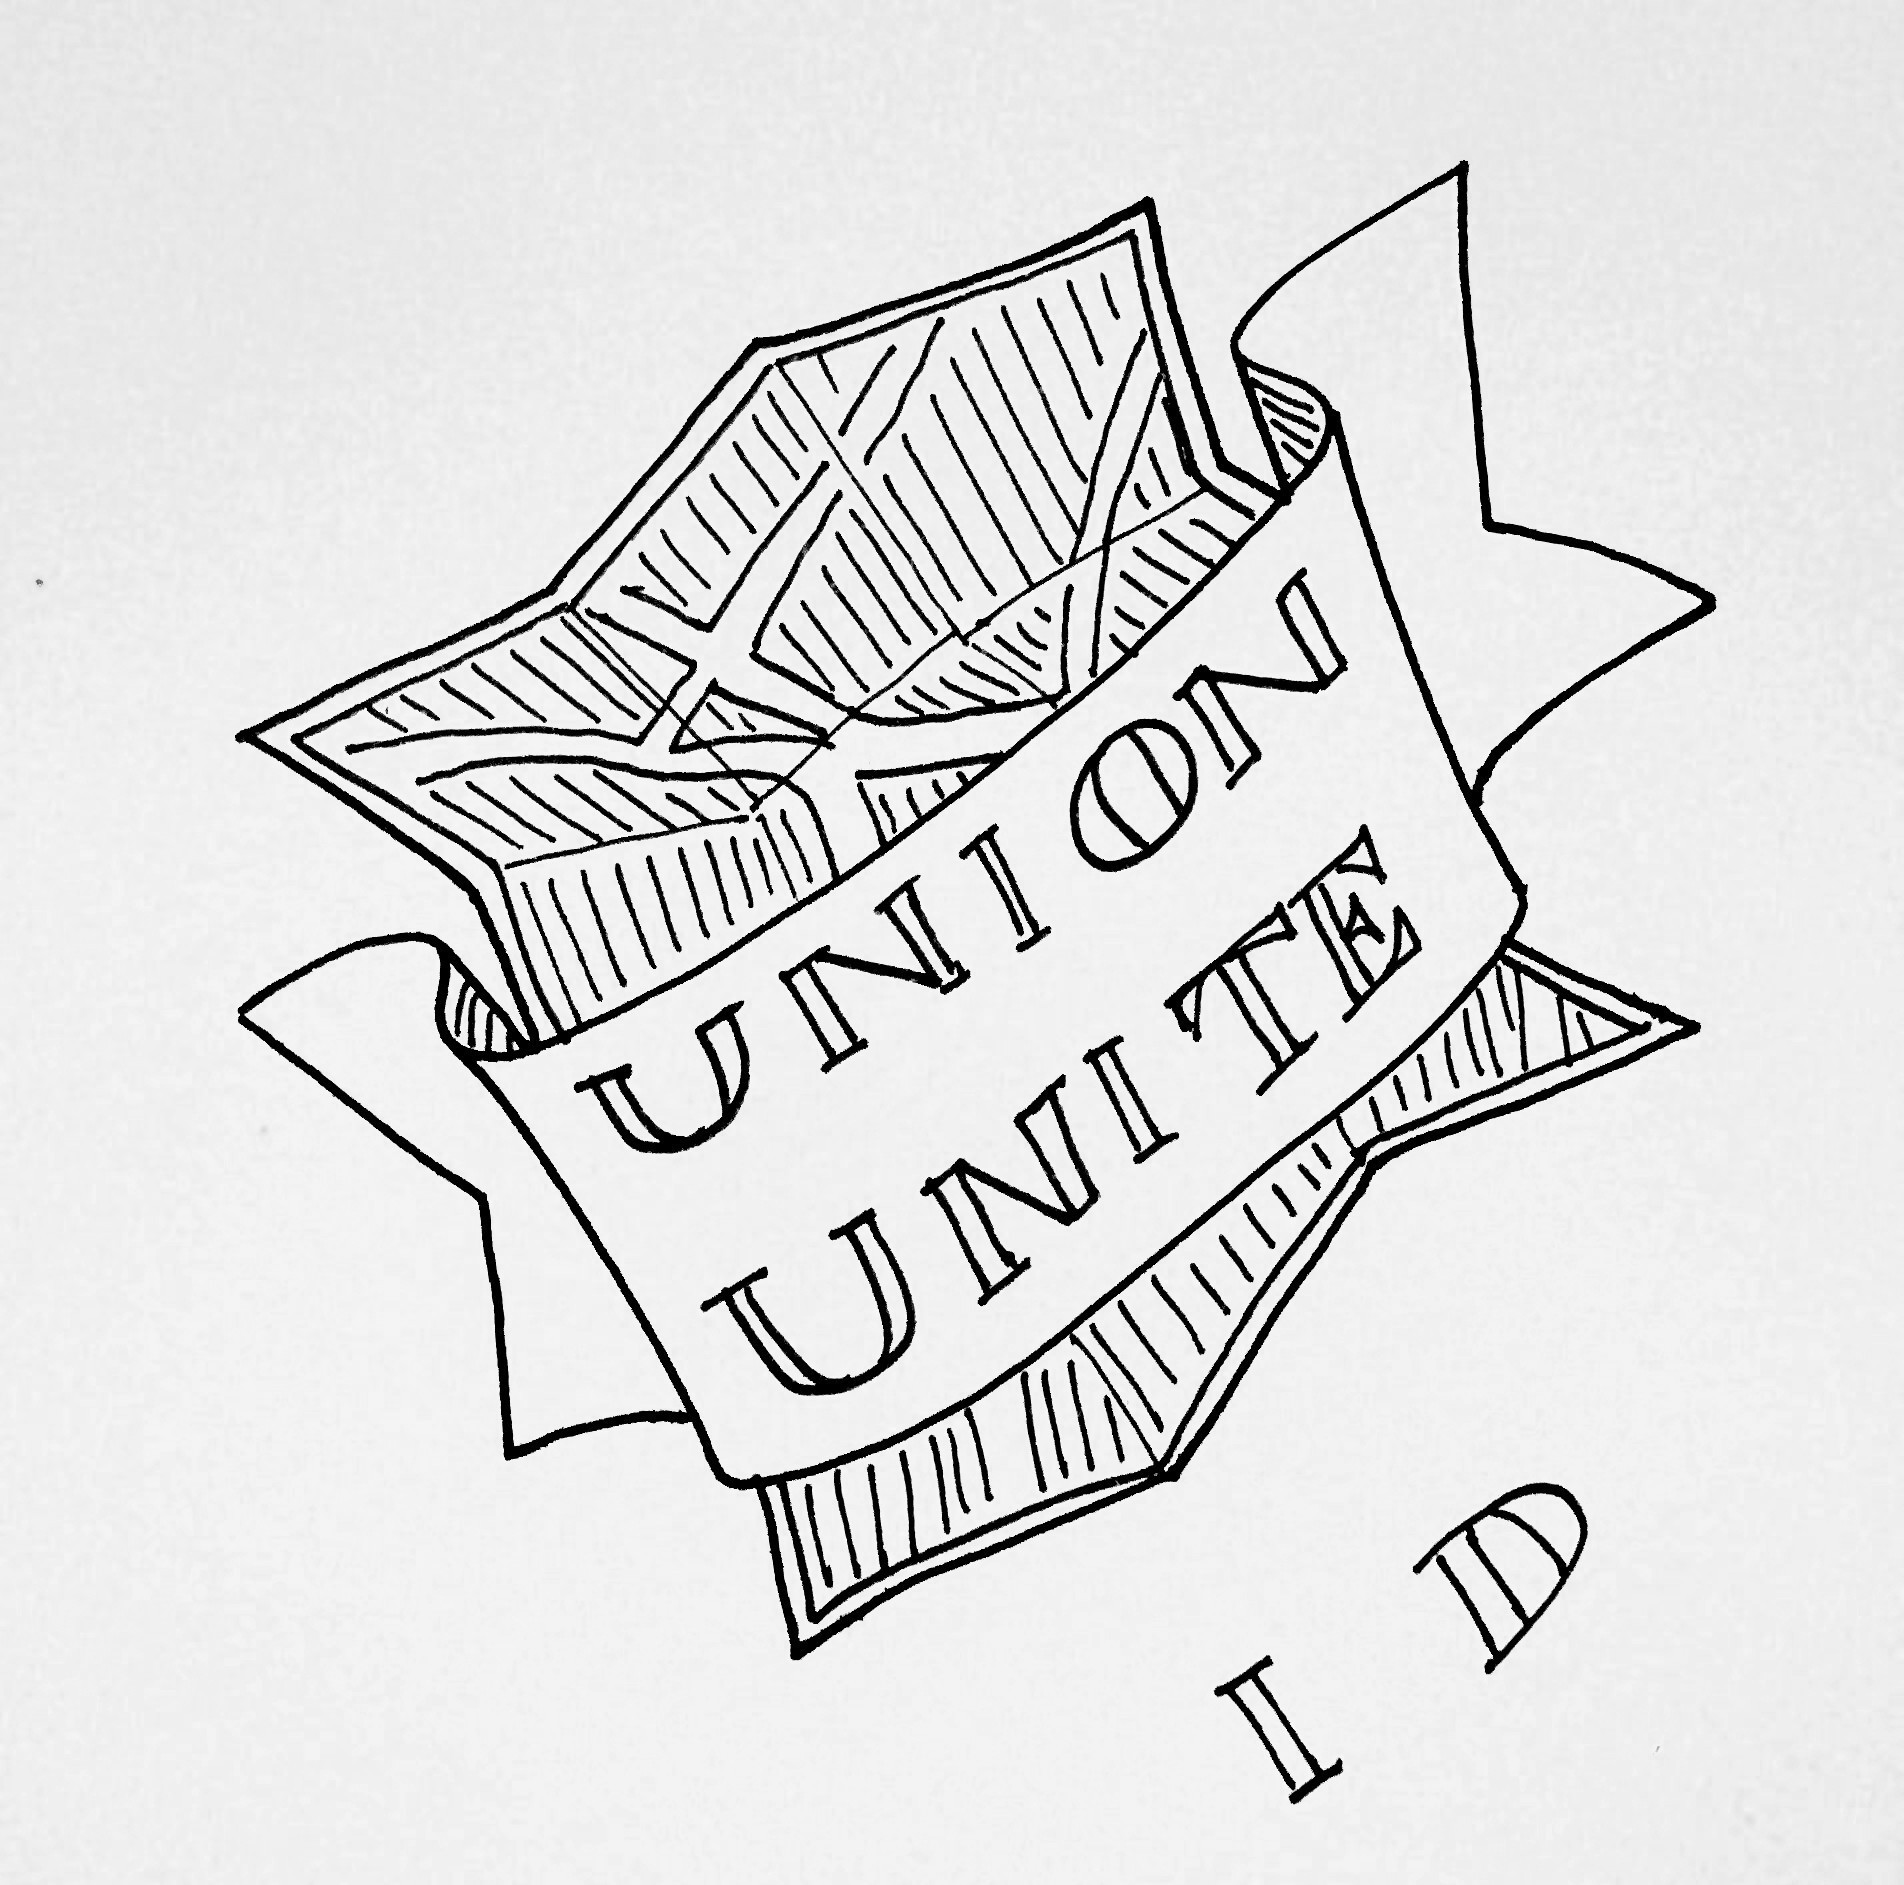 UNION
UNITE
I D